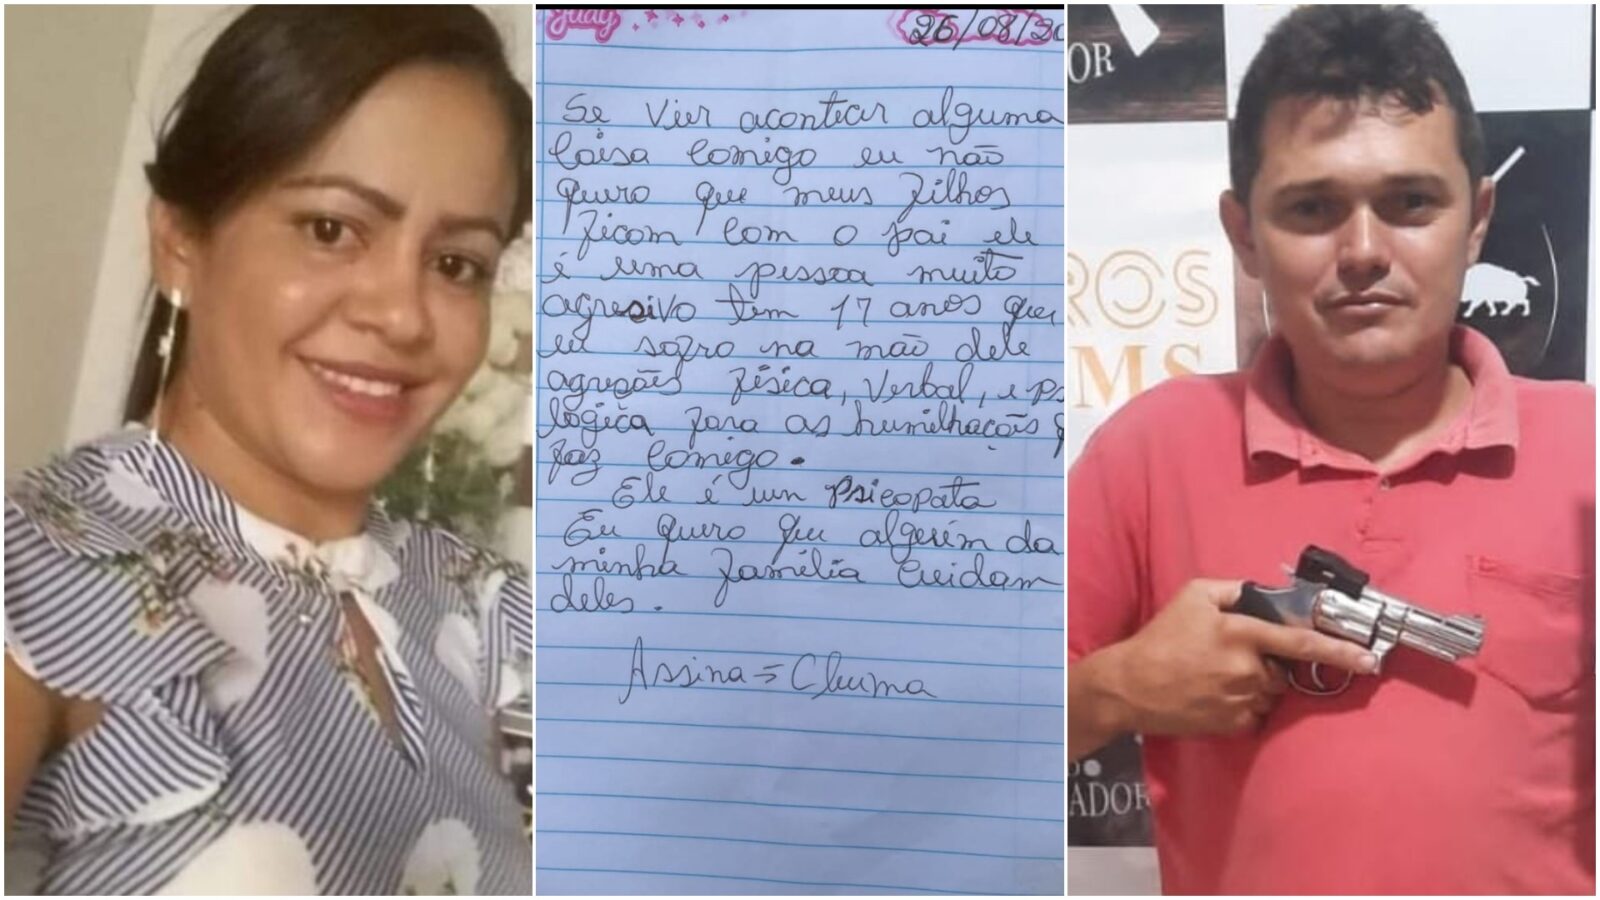 Judy
26/08/20
Se Vier acontecer alguma
Coisa Comigo eu não
quero que meus filhos
ficam com o pai ele
é uma pessoa muito
agresivo tem 17 anos que
eu sofro na mão dele
agreções física, Verbal, e ps
lógica fora as humilhações q
faz Comigo.
Ele é um Psicopata
Eu quero que alguém da
minha família Cuidam
deles.
Assina = Cleuma
OR
ROS
MS
ADOR